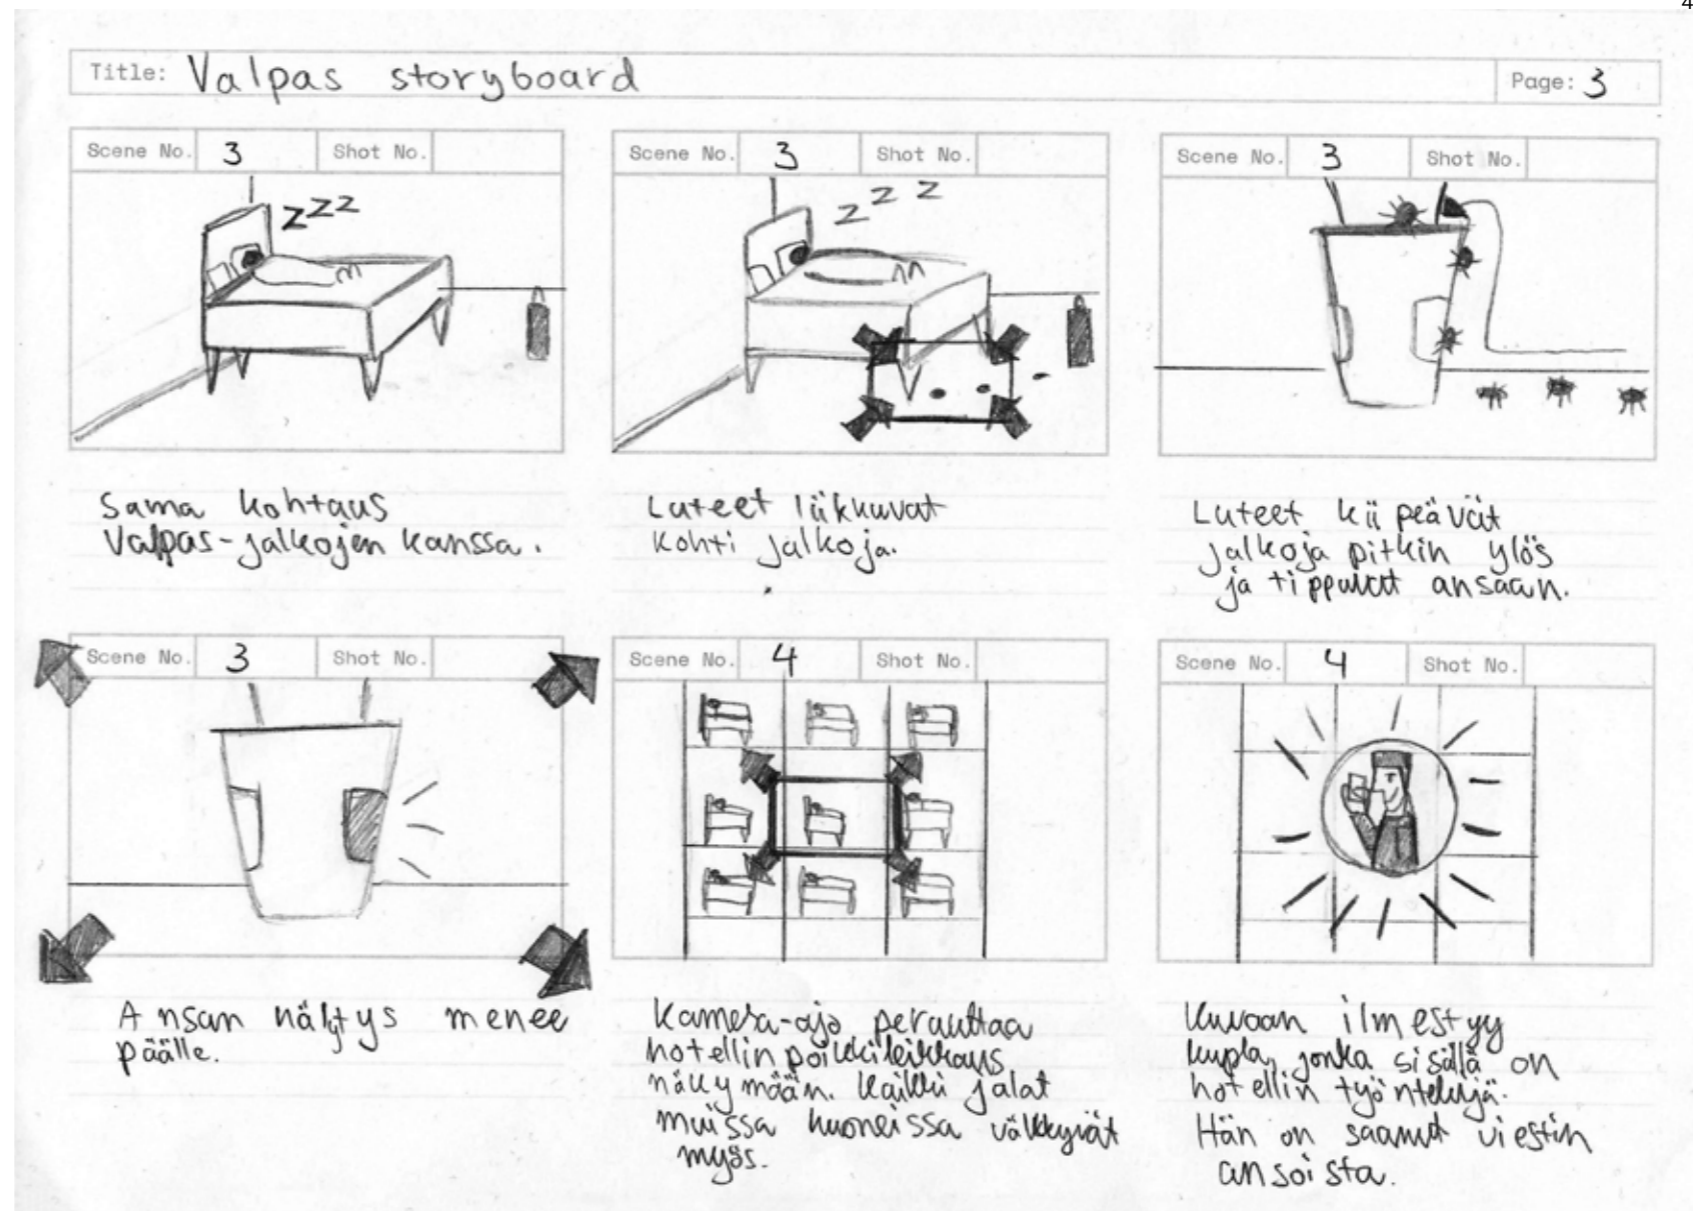 4
Title: Valpas storyboard
Page: 3
Scene No. 3 Shot No.
zzz
Sama kohtaus
Valpas-jalkojen kanssa.
Scene No. 3 Shot No.
z z z
Luteet liikkuvat
kohti jalkoja.
Scene No. 3 Shot No.
Luteet kiipeävät
jalkoja pitkin ylös
ja tippuvat ansaan.
Scene No. 3 Shot No.
Ansan hälytys menee
päälle.
Scene No. 4 Shot No.
Kamera-ajo peruuttaa
hotellin poikkileikkaus
näkymään. Kaikki jalat
muissa huoneissa välkkyvät
myös.
Scene No. 4 Shot No.
Kuvaan ilmestyy
kupla, jonka sisällä on
hotellin työntekijä.
Hän on saanut viestin
ansoista.